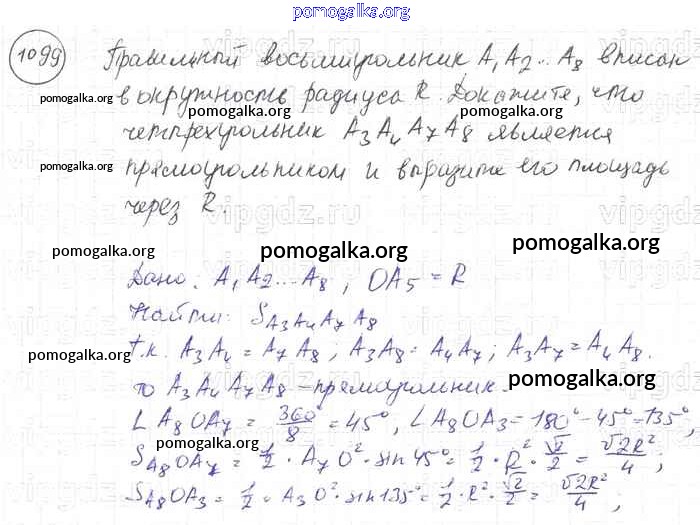 pomogalka.org
1099 Правильный восьмиугольник A₁A₂...A₈ вписан
pomogalka.org в окружность радиуса R. Докажите, что pomogalka.org
четырехугольник A₃A₄A₇A₈ является
pomogalka.org прямоугольником и выразите его площадь pomogalka.org
через R.
vipgdz.ru vipgdz.ru
pomogalka.org pomogalka.org pomogalka.org
Дано: A₁A₂...A₈; OA₅ = R
Найти: S A₃A₄A₇A₈
pomogalka.org т.к. A₃A₄ = A₇A₈; A₃A₈ = A₄A₇; A₃A₇ = A₄A₈.
то A₃A₄A₇A₈ - прямоугольник. pomogalka.org
∠A₈OA₇ = 360°/8 = 45°, ∠A₈OA₃ = 180° - 45° = 135°,
pomogalka.org
S A₈OA₇ = 1/2 · A₇O² · sin 45° = 1/2 · R² · √2/2 = √2R²/4;
S A₈OA₃ = 1/2 · A₃O² · sin 135° = 1/2 · R² · √2/2 = √2R²/4;